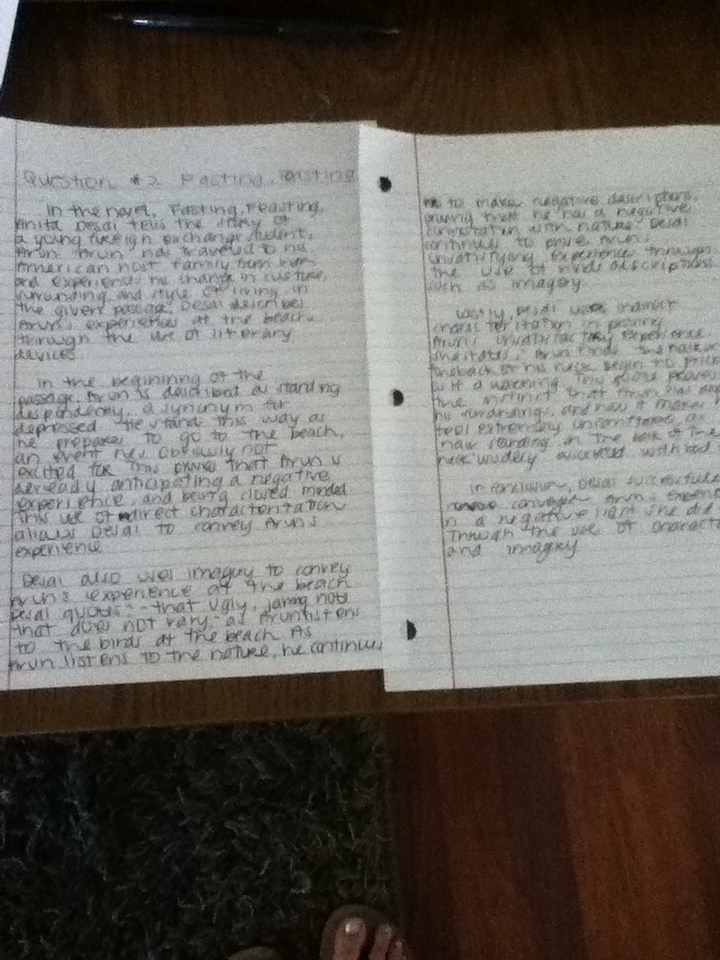 Question #2 Fasting, Feasting
In the novel, Fasting, Feasting,
Anita Desai tells the story of
a young foreign exchange student,
Arun. Arun has traveled to his
American host family
and experience his change in culture,
surrounding, and style of living. In
the given passage, Desai describes
Arun's experience at the beach
through the use of literary
devices.
In the beginning of the
passage, Arun is described as standing
despondently, a synonym for
depressed. He stand this way as
he prepares to go to the beach,
an event he's obviously not
excited for. This proves that Arun is
already anticipating a negative
experience, and being closed minded
This use of direct characteritation
allows Desai to convey Arun's
experience.
Desai also uses imagery to convey
Arun's experience at the beach
Desai quotes "that ugly, jarring note
that does not vary," as Arun listens
to the birds at the beach. As
Arun listens to the nature, he continues
to make negative descriptions,
proving that he has a negative
connotation with nature. Desai
continues to prove Arun's
unsatisfying experience through
the use of vivid descriptions
such as imagery.
Lastly, Desai uses indirect
characteritation in proving
Arun's unsatisfactory experience
Arun finds the hair on
the back of his neck begin to prick
as if a warning. This quote proves
the instinct that Arun has
his surrounding, and how it makes
feel extremely uncomfortable, as
hair standing in the back of the
neck widely associated with
In conclusion, Desai
conveyed Arun's
in a negative light. She did
Through the use of
and imagery